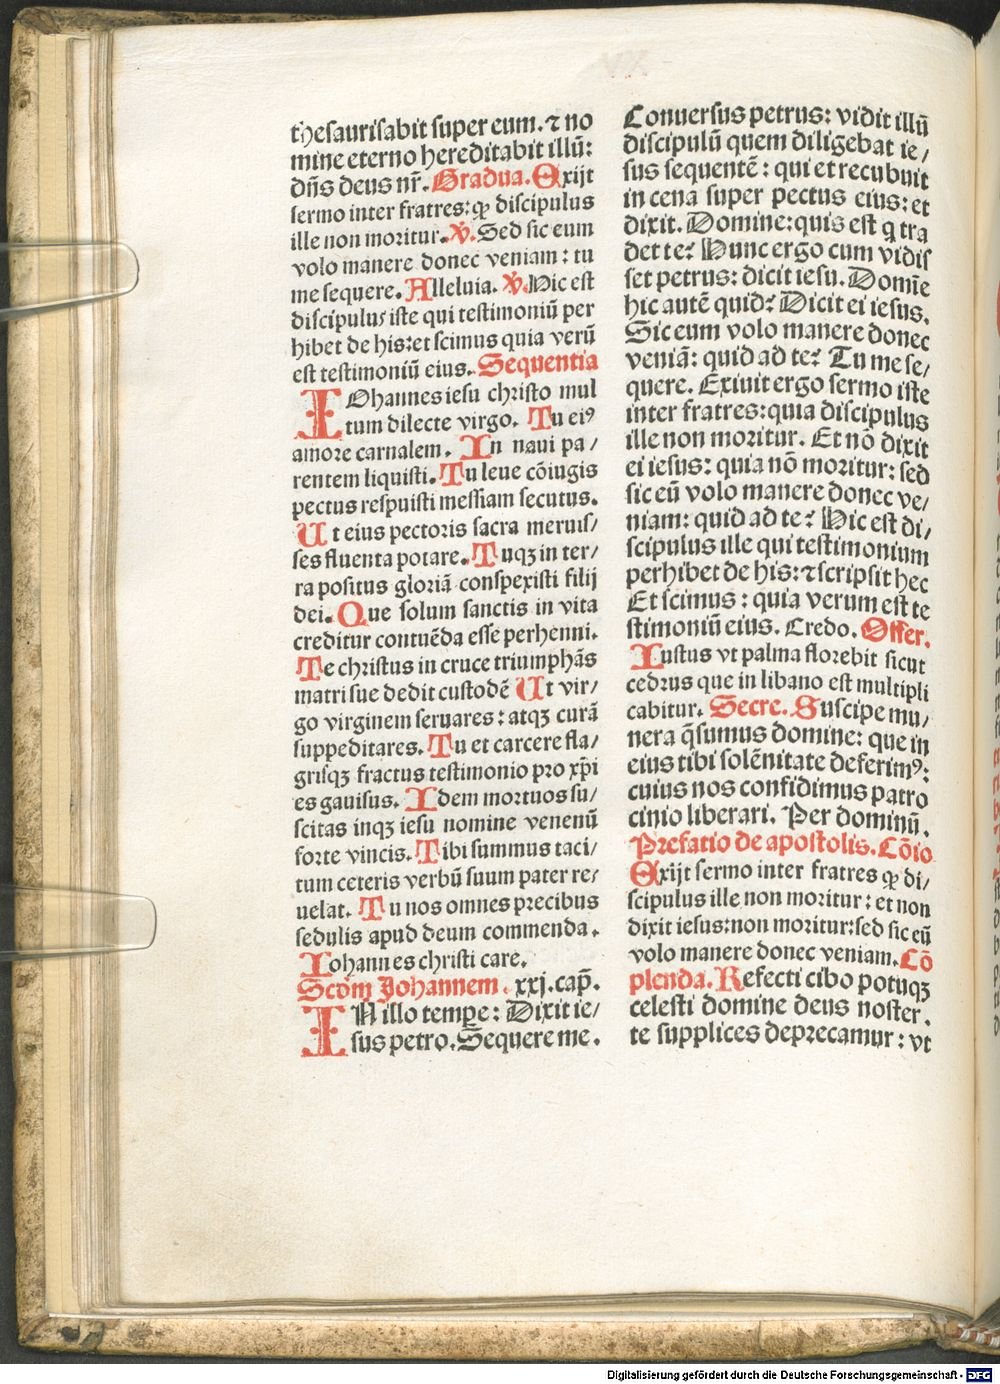 thesaurisabit super eum. ⁊ no
mine eterno hereditabit illū:
dn̄s deus nr̄. Gradua. Exijt
sermo inter fratres: ꝙ discipulus
ille non moritur. ℣. Sed sic eum
volo manere donec veniam: tu
me sequere. Alleluia. ℣. Hic est
discipulus iste qui testimoniū per
hibet de his: et scimus quia verū
est testimoniū eius. Sequentia
IOhannes iesu christo mul
tum dilecte virgo. Tu eiꝰ
amore carnalem. In naui pa/
rentem liquisti. Tu leue cōiugis
pectus respuisti messiam secutus.
Ut eius pectoris sacra meruis/
ses fluenta potare. Tuqꝫ in ter/
ra positus gloriā conspexisti filij
dei. Que solum sanctis in vita
creditur contuēda esse perhenni.
Te christus in cruce triumphās
matri sue dedit custodē Ut vir/
go virginem seruares: atqꝫ curā
suppeditares. Tu et carcere fla/
grisqꝫ fractus testimonio pro xp̄i
es gauisus. Idem mortuos su/
scitas inqꝫ iesu nomine venenū
forte vincis. Tibi summus taci/
tum ceteris verbū suum pater re/
uelat. Tu nos omnes precibus
sedulis apud deum commenda.
Iohannes christi care.
Scd̄m Johannem. xxj. cap̄.
IN illo tempꝛe: Dixit ie/
sus petro. Sequere me.
Conuersus petrus: vidit illū
discipulū quem diligebat ie/
sus sequentē: qui et recubuit
in cena super pectus eius: et
dixit. Domine: quis est q tra
det te? Hunc ergo cum vidis
set petrus: dicit iesu. Domīe
hic autē quid? Dicit ei iesus.
Sic eum volo manere donec
veniā: quid ad te? Tu me se/
quere. Exiuit ergo sermo iste
inter fratres: quia discipulus
ille non moritur. Et nō dixit
ei iesus: quia nō moritur: sed
sic eū volo manere donec ve/
niam: quid ad te? Hic est di/
scipulus ille qui testimonium
perhibet de his: ⁊ scripsit hec
Et scimus: quia verum est te
stimoniū eius. Credo. Offer.
Iustus vt palma florebit sicut
cedrus que in libano est multipli
cabitur. Secre. Suscipe mu/
nera q̄sumus domine: que in
eius tibi solēnitate deferimꝰ:
cuius nos confidimus patro
cinio liberari. Per dominū.
Prefatio de apostolis. Cōio
Exijt sermo inter fratres ꝙ di/
scipulus ille non moritur: et non
dixit iesus: non moritur: sed sic eū
volo manere donec veniam. Cō
plenda. Refecti cibo potuqꝫ
celesti domine deus noster.
te supplices deprecamur: vt
Digitalisierung gefördert durch die Deutsche Forschungsgemeinschaft - DFG